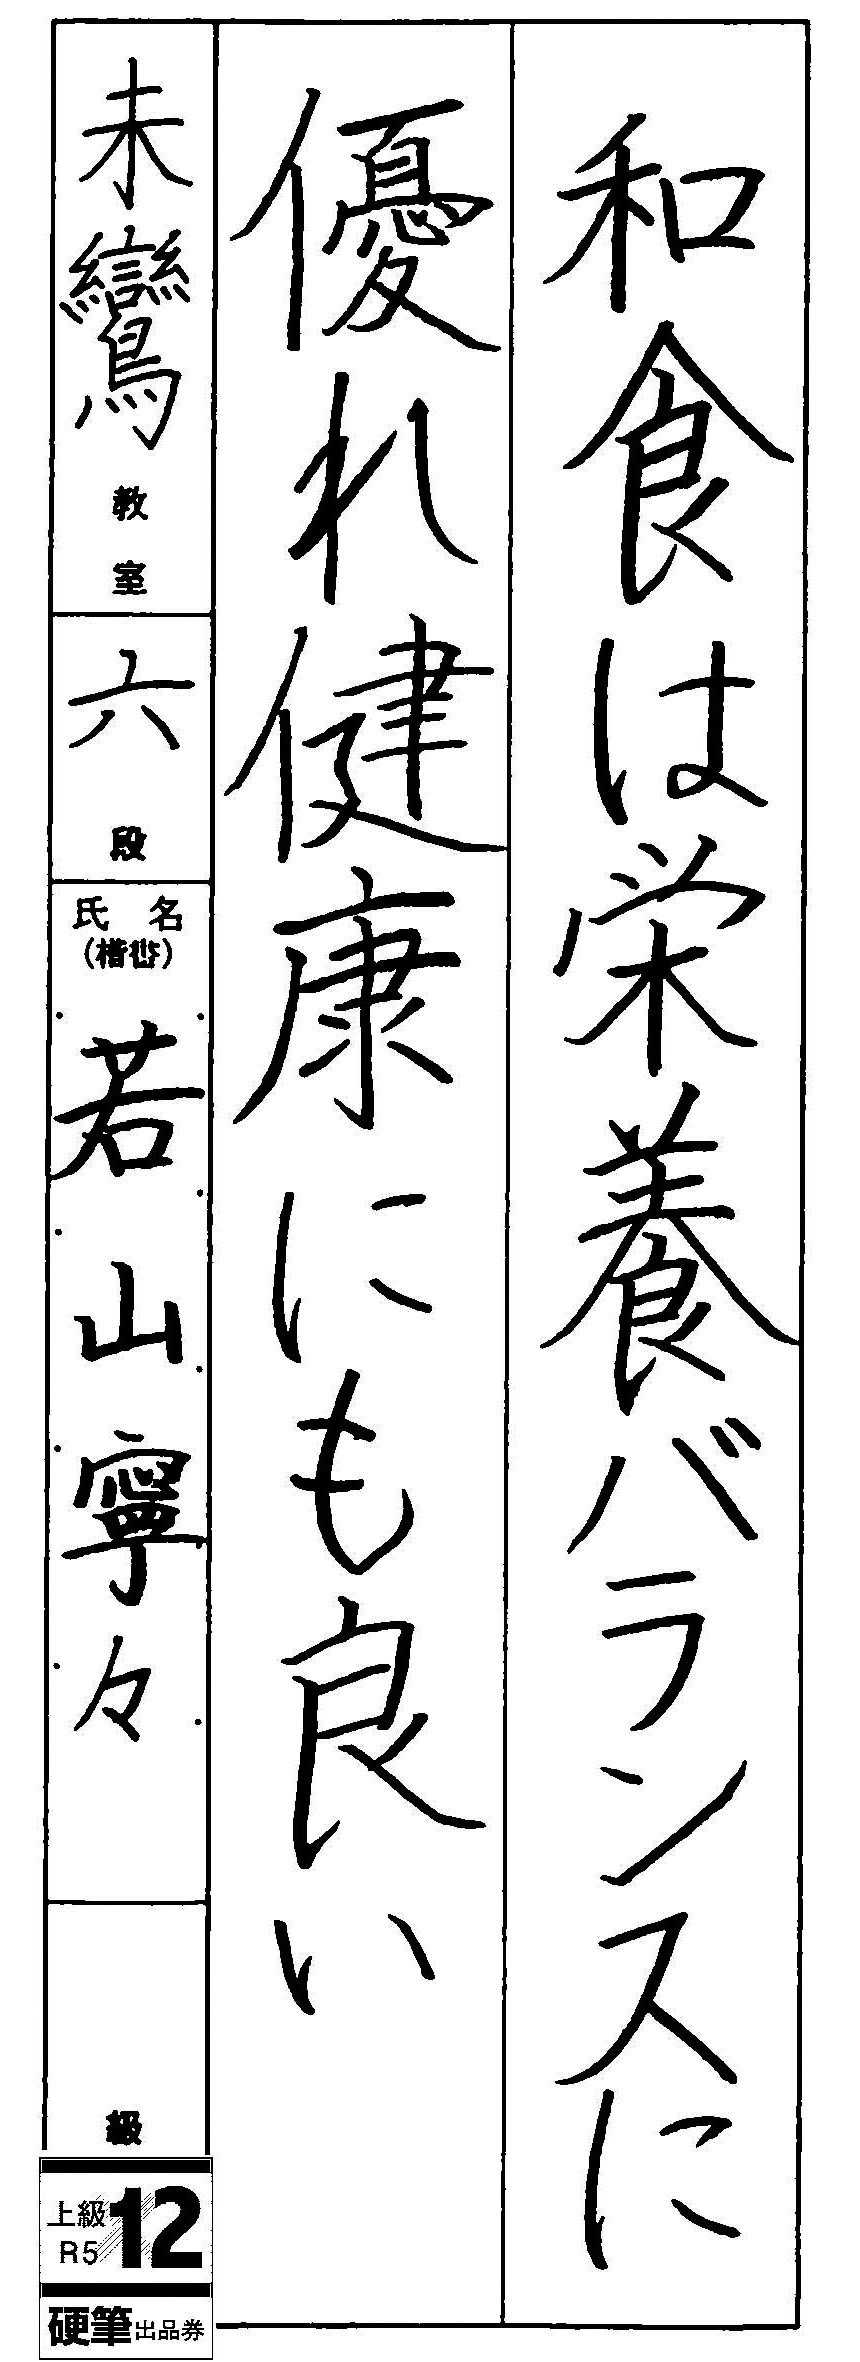 和食は栄養バランスに
優れ健康にも良い
未鸞教室
六段
氏名
(楷書)
若山寧々
級
上級
R5
12
硬筆出品券